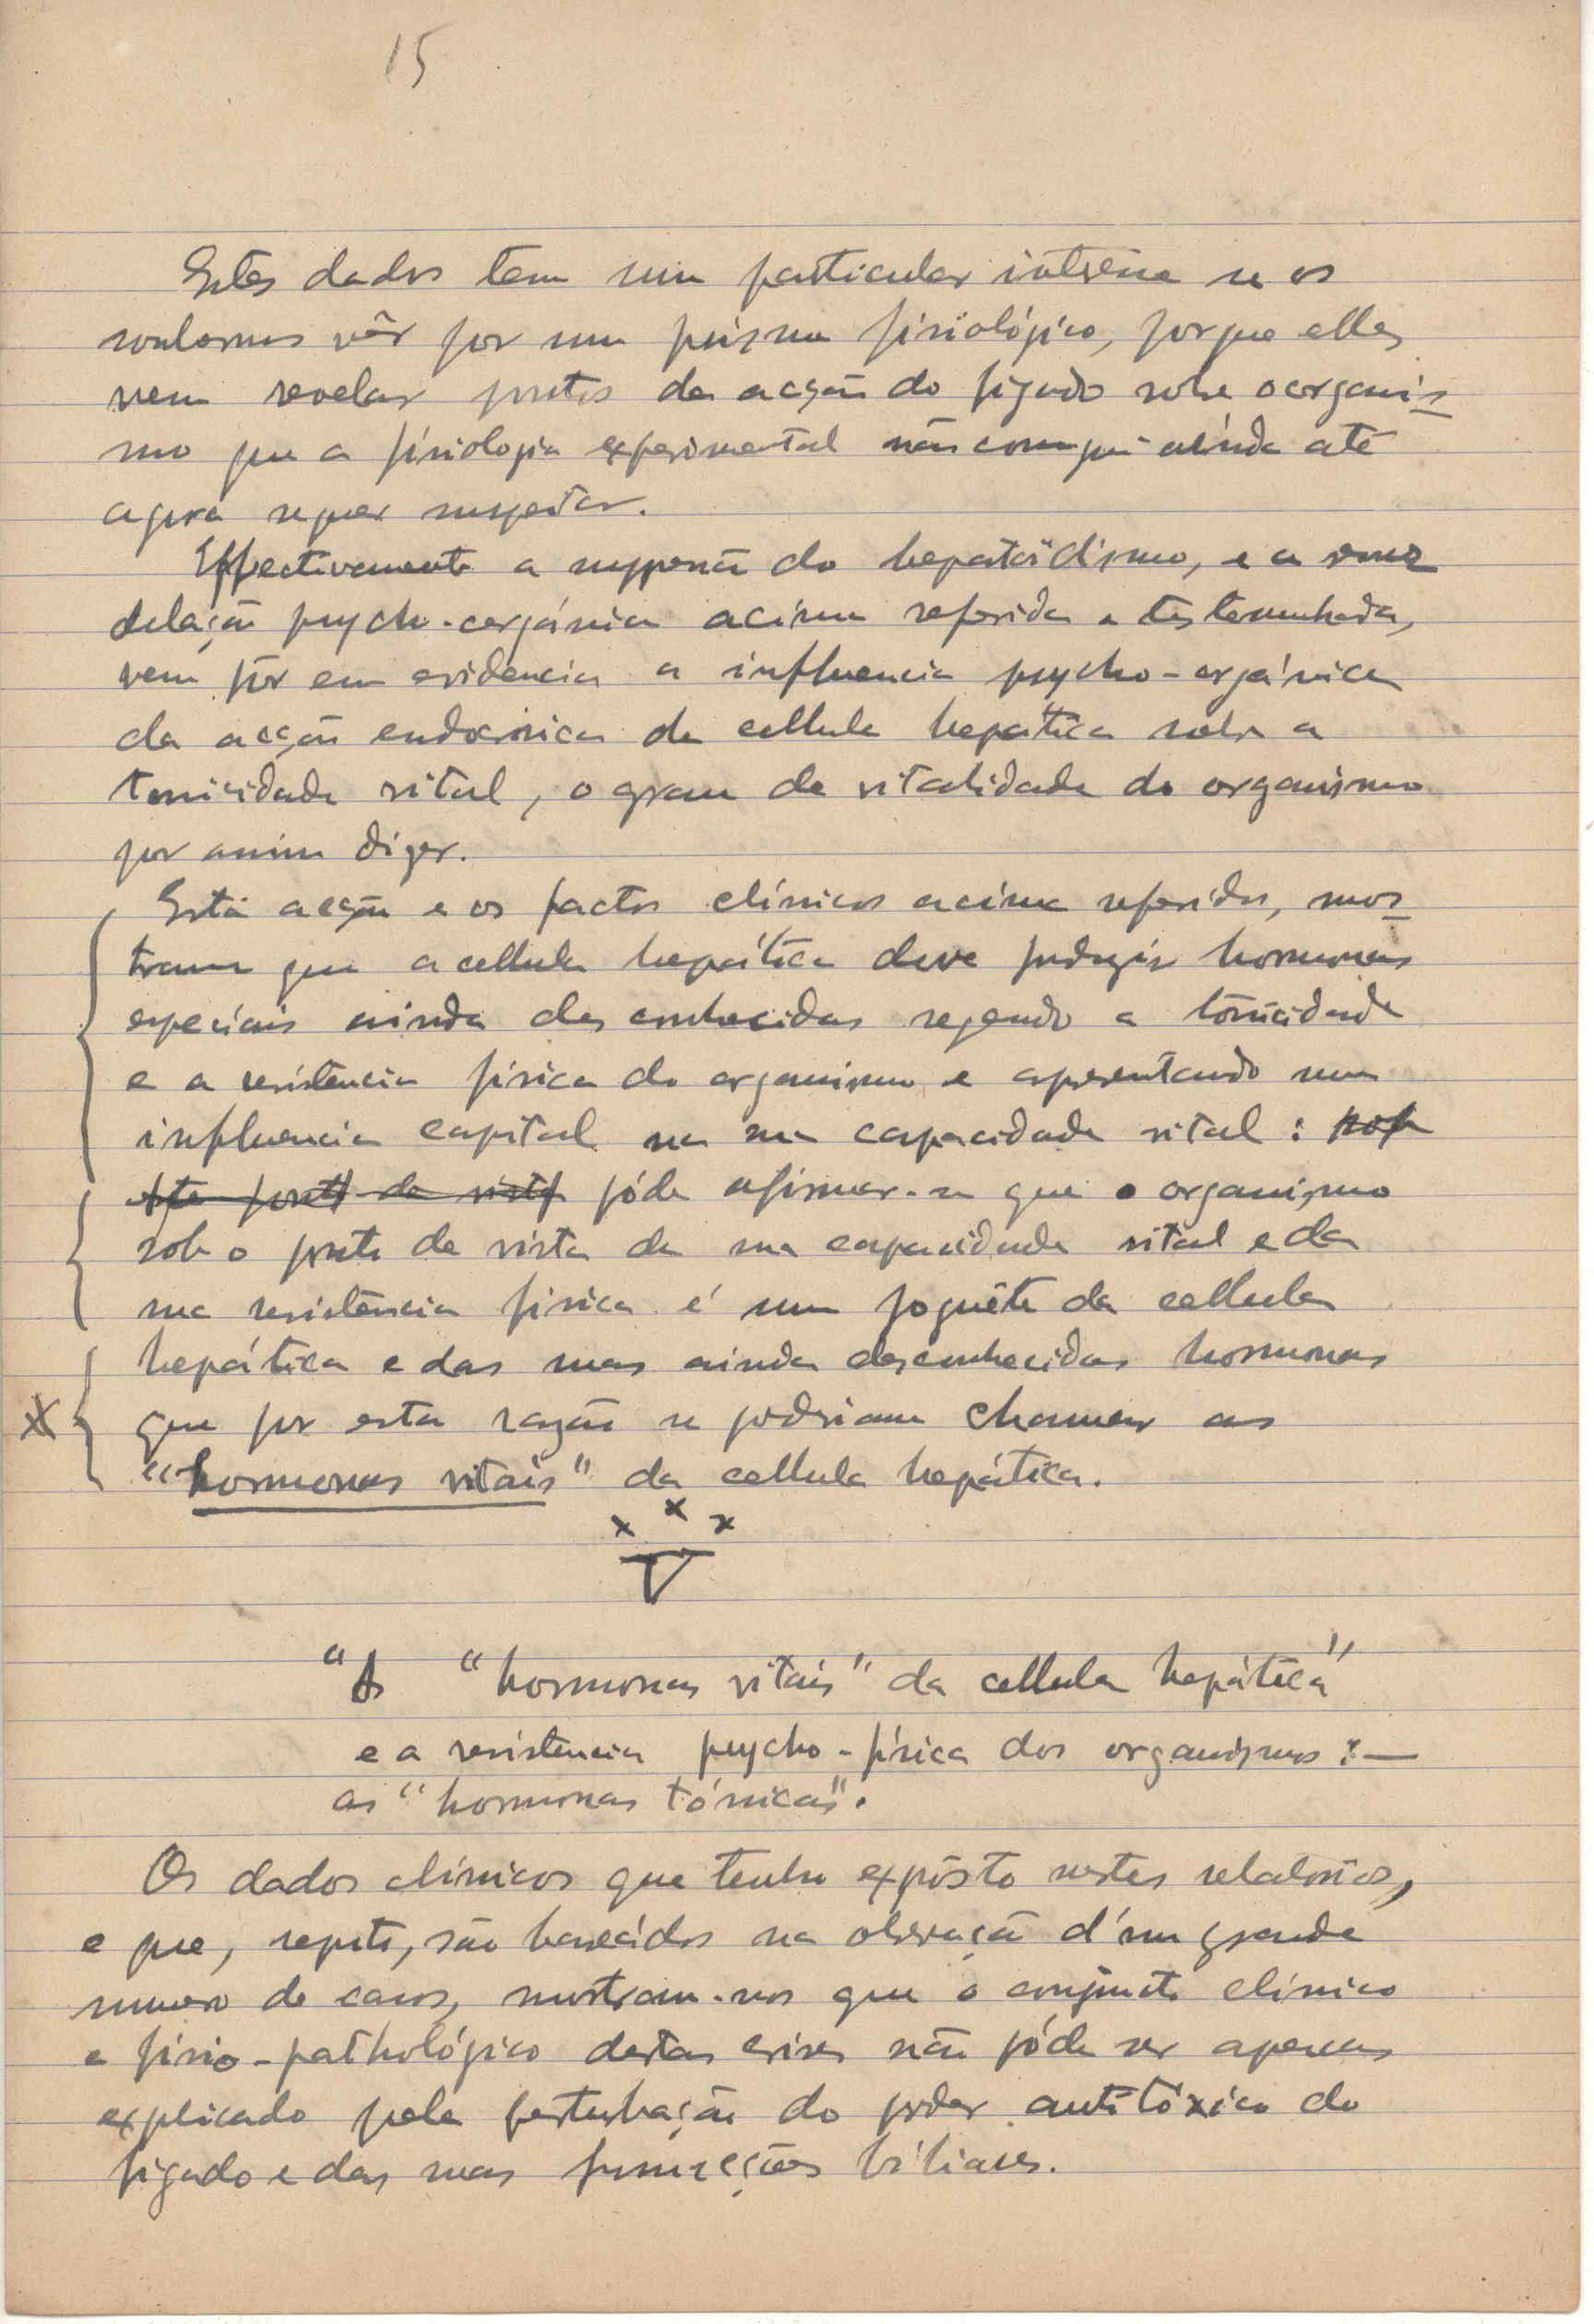 15
Estes dados tem um particular interêsse se os
soubermos vêr por um prisma fisiológico, porque elles
vem revelar pontos da acção do fígado sobre o organis-
mo que a fisiologia experimental não conseguiu ainda até
agora sequer suspeitar.
Effectivamente a suppressão do hepatoïdismo, e a remo-
delação psycho-orgánica acima referida e testemunhada,
vem pôr em evidencia a influencia psycho-orgánica
da acção endocrinica da cellula hepática sobre a
tonicidade vital, o grau de vitalidade do organismo
por assim dizer.
Esta acção e os factos clínicos acima referidos, mos-
tram que a cellula hepática deve produzir hormonas
especiais ainda desconhecidas regendo a tònicidade
e a resistencia física do organismo e apresentando uma
influencia capital na sua capacidade vital : sob
este ponto de vista póde afirmar-se que o organismo
sob o ponto de vista da sua capacidade vital e da
sua resistência física é um joguête da cellula
hepática e das suas ainda desconhecidas hormonas
que por esta razão se poderiam chamar as
"hormonas vitais" da cellula hepática.
x x x
V
"As "hormonas vitais" da cellula hepática"
e a resistencia psycho-física dos organismos :—
as "hormonas tónicas".
Os dados clínicos que tenho expôsto nestes relatórios,
e que, repito, são baseádos na obsevação d'um grande
numero de casos, mostram-nos que o conjuncto clínico
e físio-pathológico destas crises não póde ser apenas
explicado pela perturbação do poder antitóxico do
fígado e das suas funcções biliares.